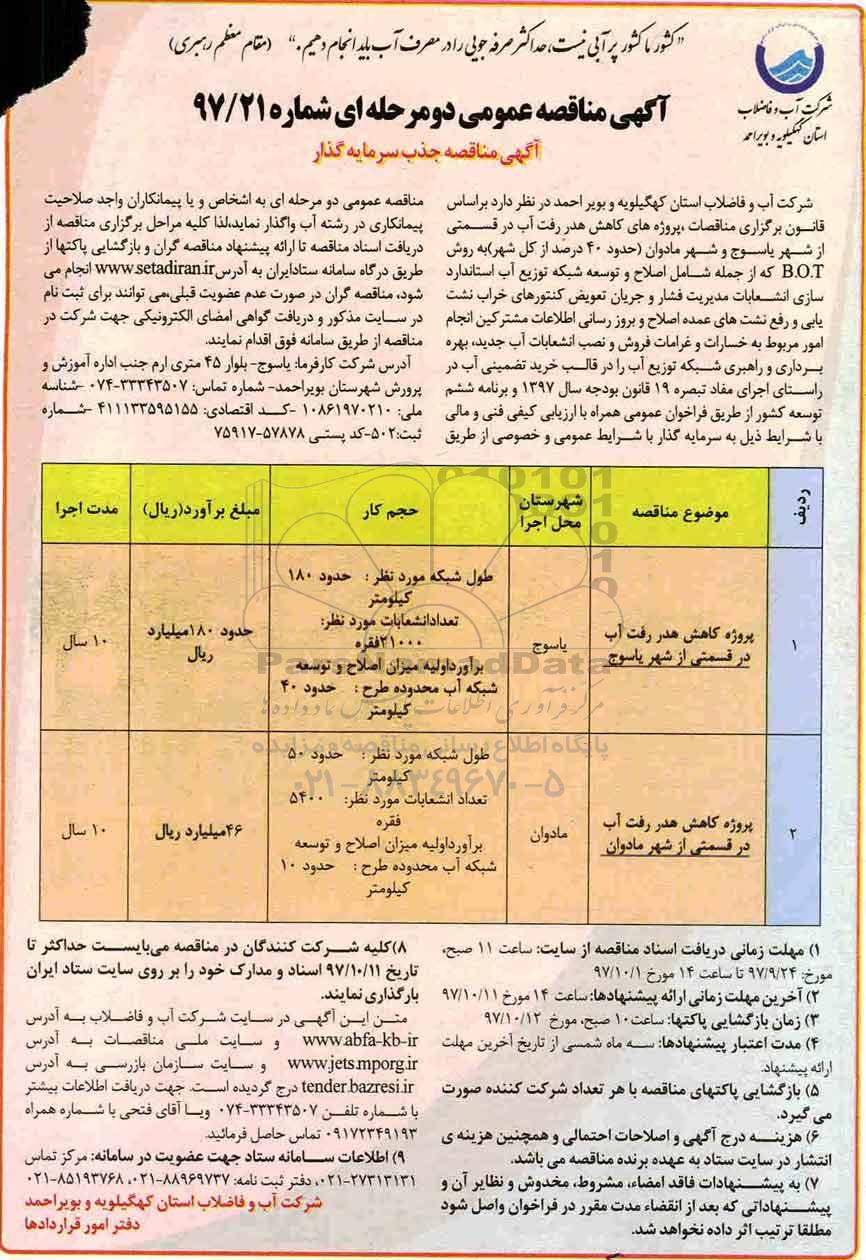 "کشور ما کشور پر آبی نیست، حداکثر صرفه جویی را در مصرف آب باید انجام دهیم." (مقام معظم رهبری)
شرکت آب و فاضلاب
استان کهگیلویه و بویراحمد
آگهی مناقصه عمومی دو مرحله ای شماره ۹۷/۲۱
آگهی مناقصه جذب سرمایه گذار
شرکت آب و فاضلاب استان کهگیلویه و بویر احمد در نظر دارد براساس
قانون برگزاری مناقصات ،پروژه های کاهش هدر رفت آب در قسمتی
از شهر یاسوج و شهر مادوان (حدود ۴۰ درصد از کل شهر)به روش
B.O.T که از جمله شامل اصلاح و توسعه شبکه توزیع آب استاندارد
سازی انشعابات مدیریت فشار و جریان تعویض کنتورهای خراب نشت
یابی و رفع نشت های عمده اصلاح و بروز رسانی اطلاعات مشترکین انجام
امور مربوط به خسارات و غرامات فروش و نصب انشعابات آب جدید، بهره
برداری و راهبری شبکه توزیع آب را در قالب خرید تضمینی آب در
راستای اجرای مفاد تبصره ۱۹ قانون بودجه سال ۱۳۹۷ و برنامه ششم
توسعه کشور از طریق فراخوان عمومی همراه با ارزیابی کیفی فنی و مالی
با شرایط ذیل به سرمایه گذار با شرایط عمومی و خصوصی از طریق
مناقصه عمومی دو مرحله ای به اشخاص و یا پیمانکاران واجد صلاحیت
پیمانکاری در رشته آب واگذار نماید،لذا کلیه مراحل برگزاری مناقصه از
دریافت اسناد مناقصه تا ارائه پیشنهاد مناقصه گران و بازگشایی پاکتها از
طریق درگاه سامانه ستادایران به آدرس www.setadiran.ir انجام می
شود، مناقصه گران در صورت عدم عضویت قبلی،می توانند برای ثبت نام
در سایت مذکور و دریافت گواهی امضای الکترونیکی جهت شرکت در
مناقصه از طریق سامانه فوق اقدام نمایند.
آدرس شرکت کارفرما: یاسوج- بلوار ۴۵ متری ارم جنب اداره آموزش و
پرورش شهرستان بویراحمد- شماره تماس: ۳۳۳۴۳۵۰۷-۰۷۴ -شناسه
ملی: ۱۰۸۶۱۹۷۰۲۱۰ -کد اقتصادی: ۴۱۱۱۳۳۵۹۵۱۵۵ -شماره
ثبت:۵۰۲-کد پستی ۵۷۸۷۸-۷۵۹۱۷
ردیف
موضوع مناقصه
شهرستان
محل اجرا
حجم کار
مبلغ برآورد(ریال)
مدت اجرا
۱
پروژه کاهش هدر رفت آب
در قسمتی از شهر یاسوج
یاسوج
طول شبکه مورد نظر : حدود ۱۸۰
کیلومتر
تعدادانشعابات مورد نظر:
۲۱۰۰۰فقره
برآورداولیه میزان اصلاح و توسعه
شبکه آب محدوده طرح : حدود ۴۰
کیلومتر
حدود ۱۸۰میلیارد
ریال
۱۰ سال
۲
پروژه کاهش هدر رفت آب
در قسمتی از شهر مادوان
مادوان
طول شبکه مورد نظر : حدود ۵۰
کیلومتر
تعداد انشعابات مورد نظر: ۵۴۰۰
فقره
برآورداولیه میزان اصلاح و توسعه
شبکه آب محدوده طرح : حدود ۱۰
کیلومتر
۴۶میلیارد ریال
۱۰ سال
ParsNamadData
پایگاه اطلاع رسانی مناقصه و مزایده
۰۲۱-۸۸۳۴۹۶۷۰-۵
۱) مهلت زمانی دریافت اسناد مناقصه از سایت: ساعت ۱۱ صبح،
مورخ: ۹۷/۹/۲۴ تا ساعت ۱۴ مورخ ۹۷/۱۰/۱
۲) آخرین مهلت زمانی ارائه پیشنهادها: ساعت ۱۴ مورخ ۹۷/۱۰/۱۱
۳) زمان بازگشایی پاکتها: ساعت۱۰ صبح، مورخ ۹۷/۱۰/۱۲
۴) مدت اعتبار پیشنهادها: سه ماه شمسی از تاریخ آخرین مهلت
ارائه پیشنهاد.
۵) بازگشایی پاکتهای مناقصه با هر تعداد شرکت کننده صورت
می گیرد.
۶) هزینه درج آگهی و اصلاحات احتمالی و همچنین هزینه ی
انتشار در سایت ستاد به عهده برنده مناقصه می باشد.
۷) به پیشنهادات فاقد امضاء، مشروط، مخدوش و نظایر آن و
پیشنهاداتی که بعد از انقضاء مدت مقرر در فراخوان واصل شود
مطلقا ترتیب اثر داده نخواهد شد.
۸)کلیه شرکت کنندگان در مناقصه می‌بایست حداکثر تا
تاریخ ۹۷/۱۰/۱۱ اسناد و مدارک خود را بر روی سایت ستاد ایران
بارگذاری نمایند.
متن این آگهی در سایت شرکت آب و فاضلاب به آدرس
www.abfa-kb-ir و سایت ملی مناقصات به آدرس
www.jets.mporg.ir و سایت سازمان بازرسی به آدرس
tender.bazresi.ir درج گردیده است. جهت دریافت اطلاعات بیشتر
با شماره تلفن ۳۳۳۴۳۵۰۷-۰۷۴ ویا آقای فتحی با شماره همراه
۰۹۱۷۲۳۴۹۱۹۳ تماس حاصل فرمائید.
۹) اطلاعات سامانه ستاد جهت عضویت در سامانه: مرکز تماس
۰۲۱-۲۷۳۱۳۱۳۱، دفتر ثبت نامه: ۸۸۹۶۹۷۳۷-۰۲۱، ۸۵۱۹۳۷۶۸-۰۲۱
شرکت آب و فاضلاب استان کهگیلویه و بویراحمد
دفتر امور قراردادها